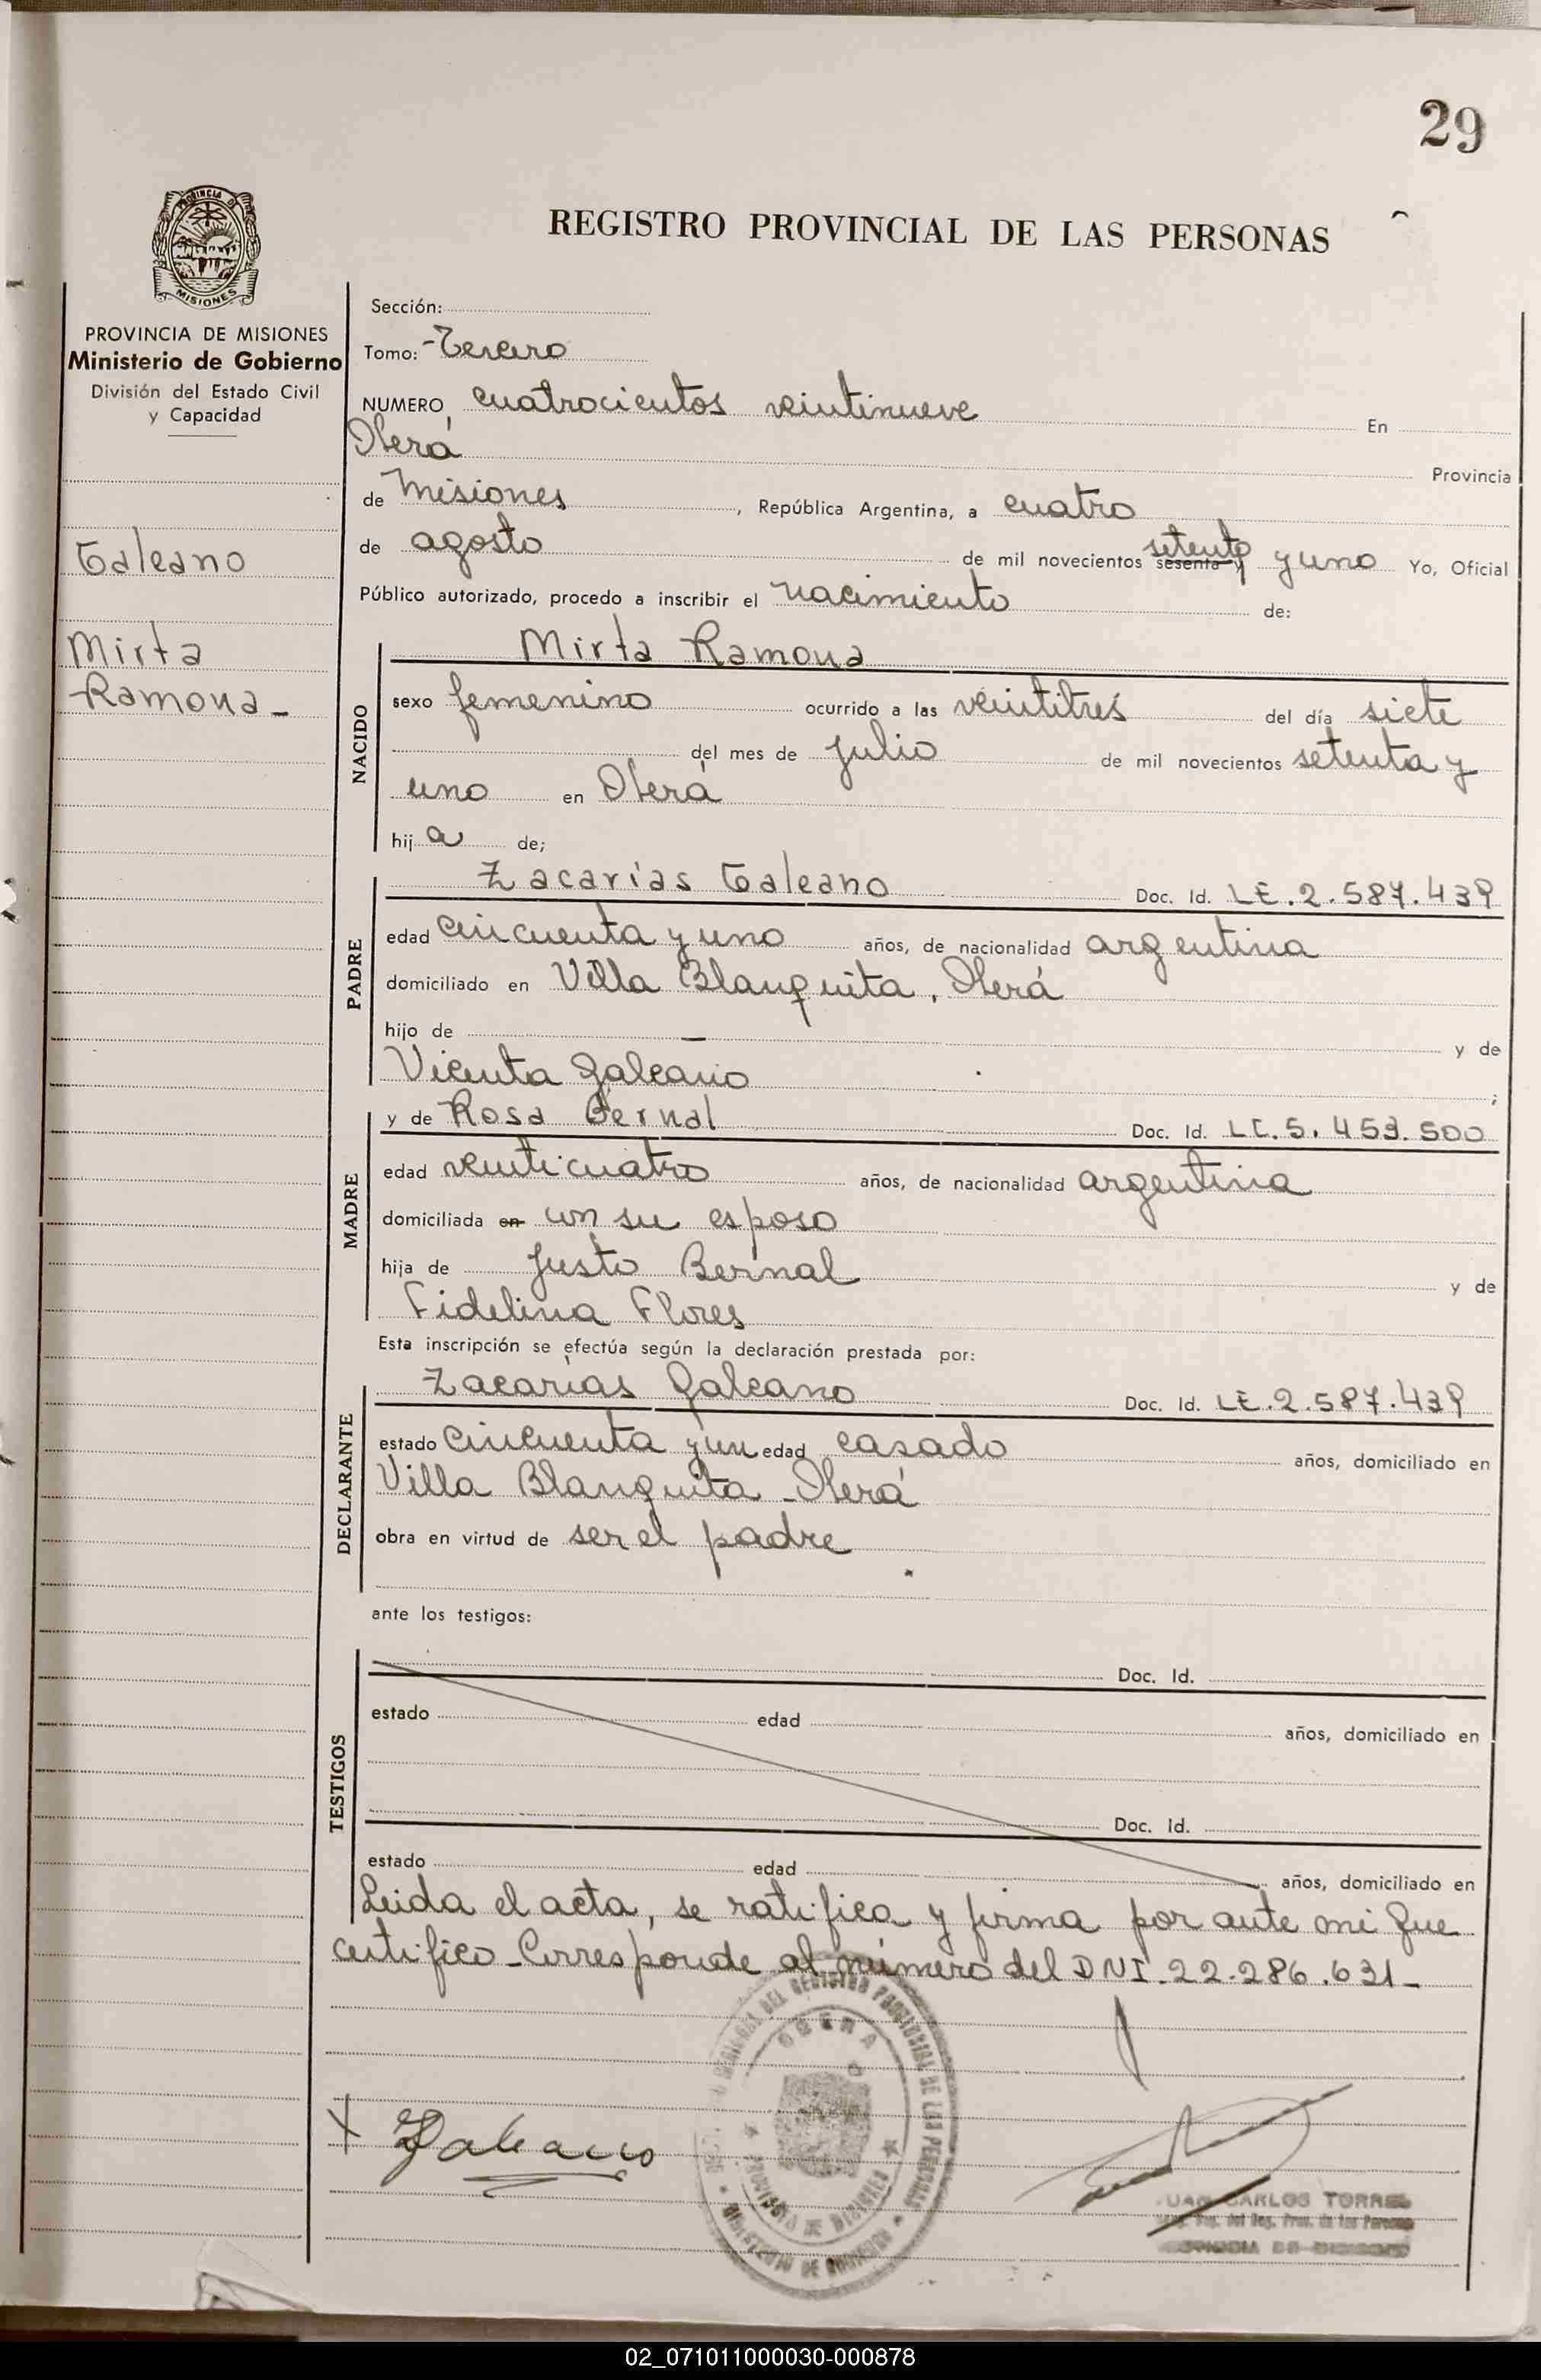 29
REGISTRO PROVINCIAL DE LAS PERSONAS
PROVINCIA DE
MISIONES
PROVINCIA DE MISIONES
Ministerio de Gobierno
División del Estado Civil
y Capacidad
Galeano
Mirta
Ramona -
Sección:
Tomo: - Tercero
NUMERO cuatrocientos veintinueve En
Oberá Provincia
de Misiones, República Argentina, a cuatro
de agosto de mil novecientos sesenta y setenta y uno Yo, Oficial
Público autorizado, procedo a inscribir el nacimiento de:
NACIDO
Mirta Ramona
sexo femenino ocurrido a las veintitrés del día siete
del mes de julio de mil novecientos setenta y
uno en Oberá
hij a de;
PADRE
Zacarías Galeano Doc. Id. LE.2.587.439
edad cincuenta y uno años, de nacionalidad argentina
domiciliado en Villa Blanquita, Oberá
hijo de — y de
Vicenta Galeano ;
MADRE
y de Rosa Bernal Doc. Id. LC.5.453.500
edad veinticuatro años, de nacionalidad argentina
domiciliada en con su esposo
hija de Justo Bernal y de
Fidelina Flores
Esta inscripción se efectúa según la declaración prestada por:
DECLARANTE
Zacarías Galeano Doc. Id. LE.2.587.439
estado cincuenta y un edad casado años, domiciliado en
Villa Blanquita - Oberá
obra en virtud de ser el padre
ante los testigos:
TESTIGOS
Doc. Id.
estado edad años, domiciliado en
Doc. Id.
estado edad años, domiciliado en
Leida el acta, se ratifica y firma por ante mi que
certifico - Corresponde al número del DNI. 22.286.631 -
DEL REGISTRO PROVINCIAL DE LAS PERSONAS
OBERA
PROVINCIA DE MISIONES
X ZGaleano
JUAN CARLOS TORRES
del Reg. Prov. de las Personas
02_071011000030-000878